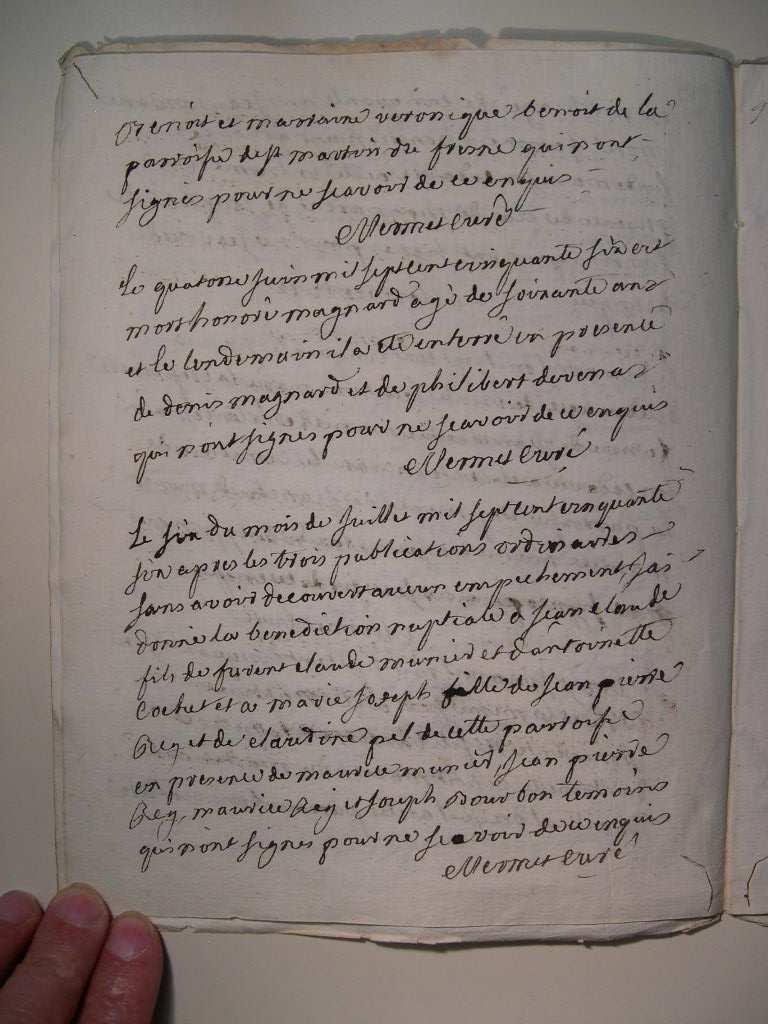 Benoit et marraine veronique benoit de la
parroisse de st martin du fresne qui n ont
signés pour ne scavoir de ce enquis
Mermet Curé
Le quatorse juin mil sept cent cinquante six est
mort honoré magnard agé de soixante ans
et le lendemain il a eté enterré en presence
de denis magnard et de philibert devenas
qui n ont signes pour ne scavoir de ce enquis
Mermet Curé
Le six du mois de Juillet mil sept cent cinquante
six apres les trois publications ordinaires
sans avoir decouvert aucun empechement, jai
donné la benediction nuptiale a jean claude
fils de furent claude munier et d'antoinette
Cochet et a marie joseph fille de jean pierre
Rey et de claudine pel de cette parroisse
en presence de maurice munier, jean pierre
Rey, maurice Rey et joseph Bourbon temoins
qui n ont signes pour ne scavoir de ce enquis
Mermet Curé